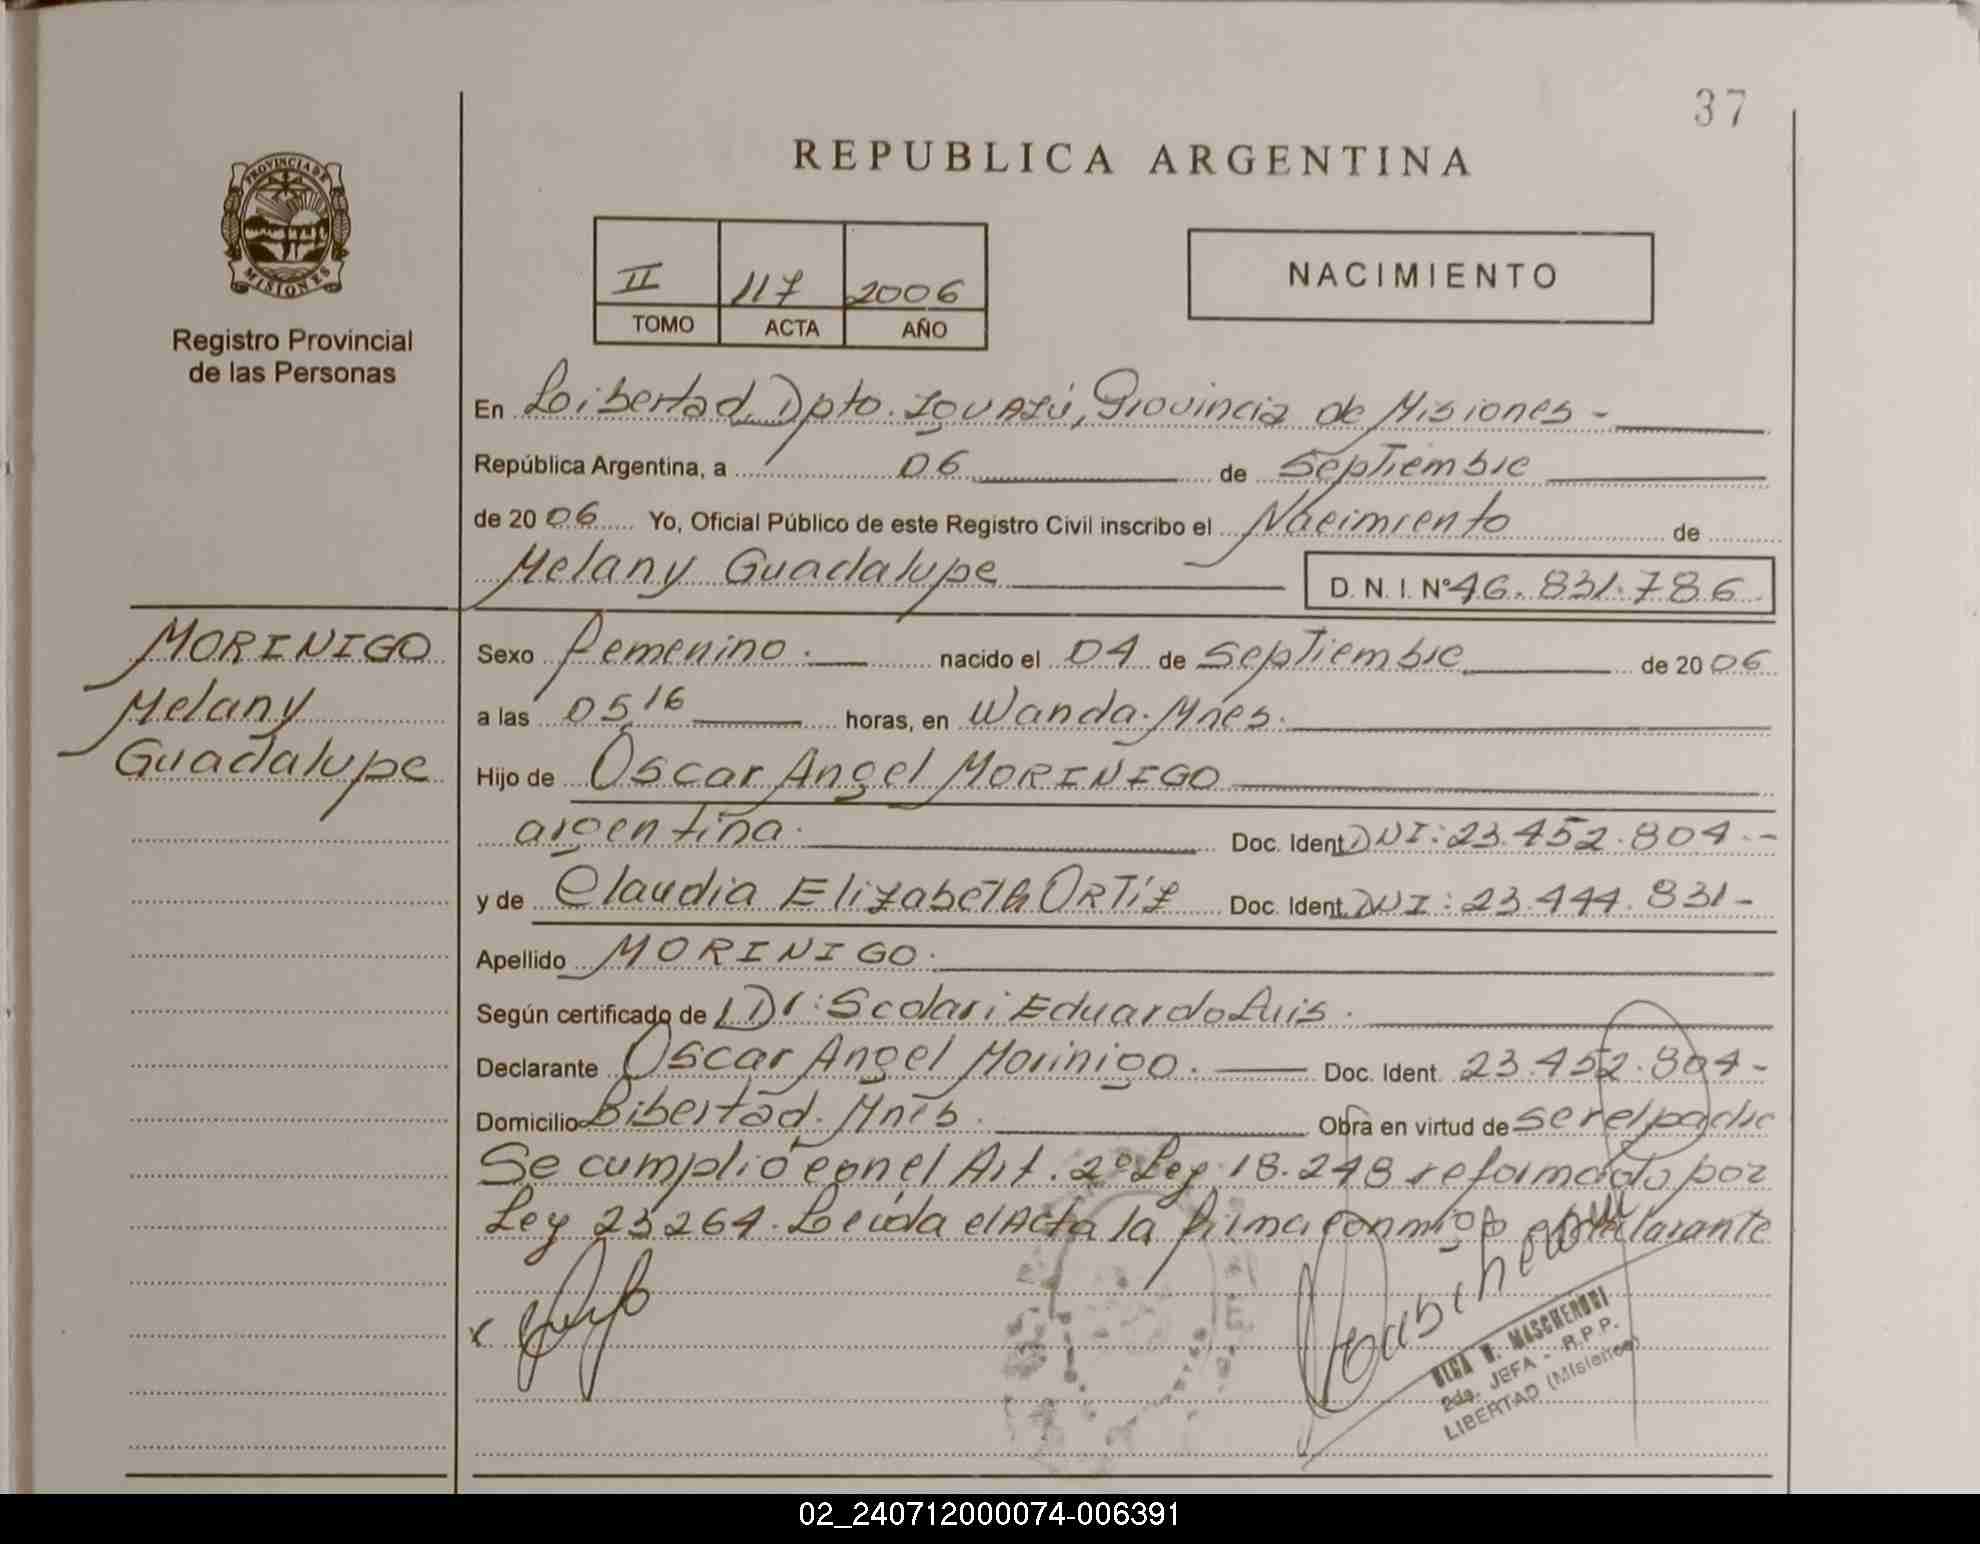 37
PROVINCIA DE
MISIONES
Registro Provincial
de las Personas
REPUBLICA ARGENTINA
II 117 2006
TOMO ACTA AÑO
NACIMIENTO
En Libertad, Dpto. IGUAZÚ, Provincia de Misiones -
República Argentina, a 06 de Septiembre
de 2006 Yo, Oficial Público de este Registro Civil inscribo el Nacimiento de
Melany Guadalupe D. N. I. N° 46.831.786
MORINIGO
Melany
Guadalupe
Sexo femenino. nacido el 04 de Septiembre de 2006
a las 05,16 horas, en Wanda. Mnes.
Hijo de Oscar Angel MORINIGO
argentina. Doc. Ident. DNI: 23.452.804.-
y de Claudia Elizabeth ORTÍZ Doc. Ident. DNI: 23.444.831-
Apellido MORINIGO.
Según certificado de Dr: Scolari Eduardo Luis.
Declarante Oscar Angel Morinigo. Doc. Ident. 23.452.804-
Domicilio Libertad. Mnes. Obra en virtud de ser el padre
Se cumplió con el Art. 2º Ley 18.248 reformada por
Ley 23264. Leída el Acta la firma conmigo el declarante
x
OLGA N. MASCHENSKI
2da. JEFA - R.P.P.
LIBERTAD (Misiones)
02_240712000074-006391